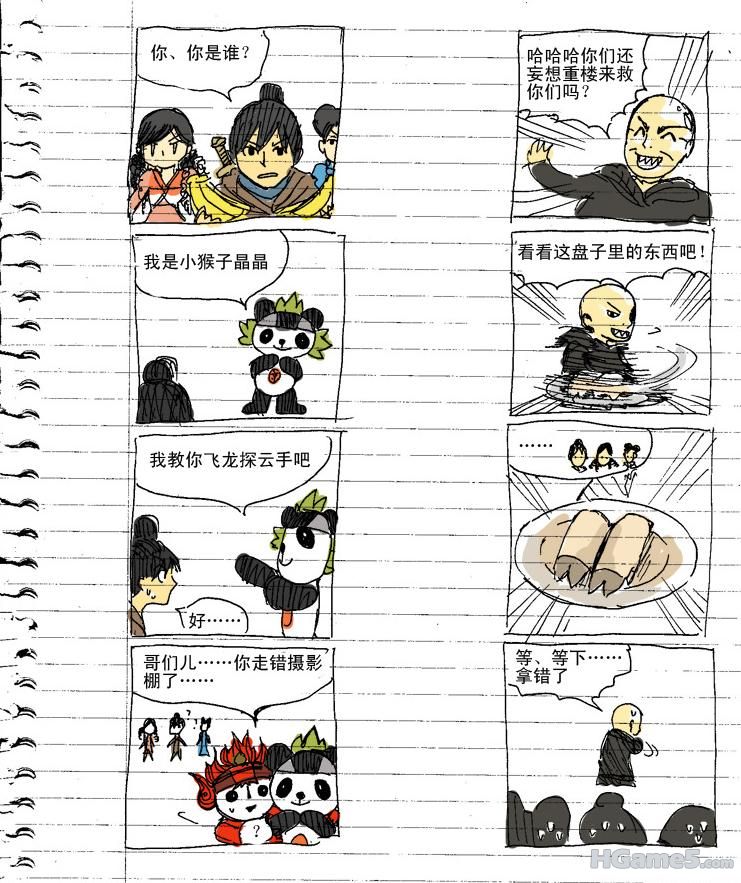 你、你是谁？
我是小猴子晶晶
我教你飞龙探云手吧
好……
哥们儿……你走错摄影
棚了……
?
?
哈哈哈你们还
妄想重楼来救
你们吗？
看看这盘子里的东西吧！
……
等、等下……
拿错了
HGame5.com